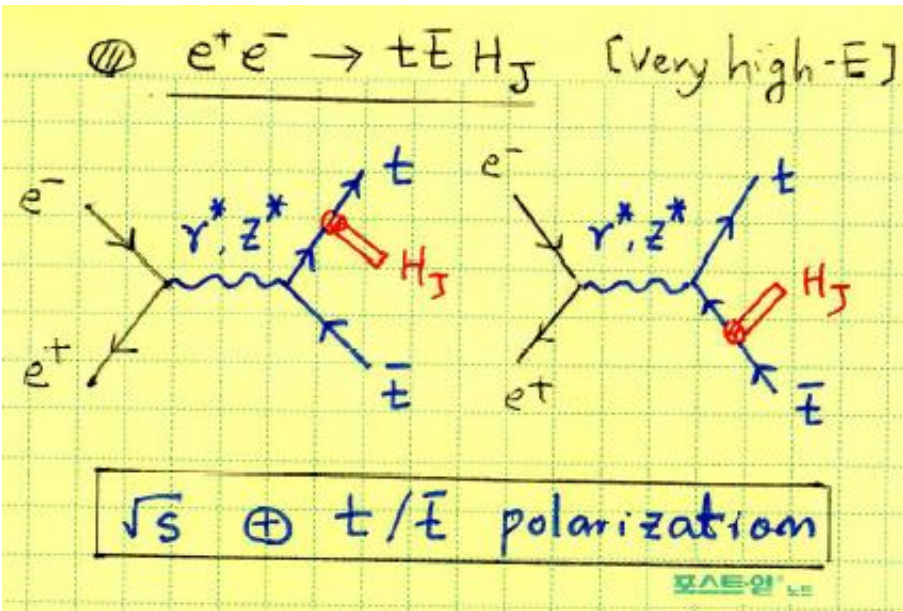 e⁺e⁻ → tt̄ H_J [very high-E]
e⁻ γ*, Z* t H_J e⁺ t̄
e⁻ γ*, Z* t H_J e⁺ t̄
√s ⊕ t/t̄ polarization
포스트-잇® 노트